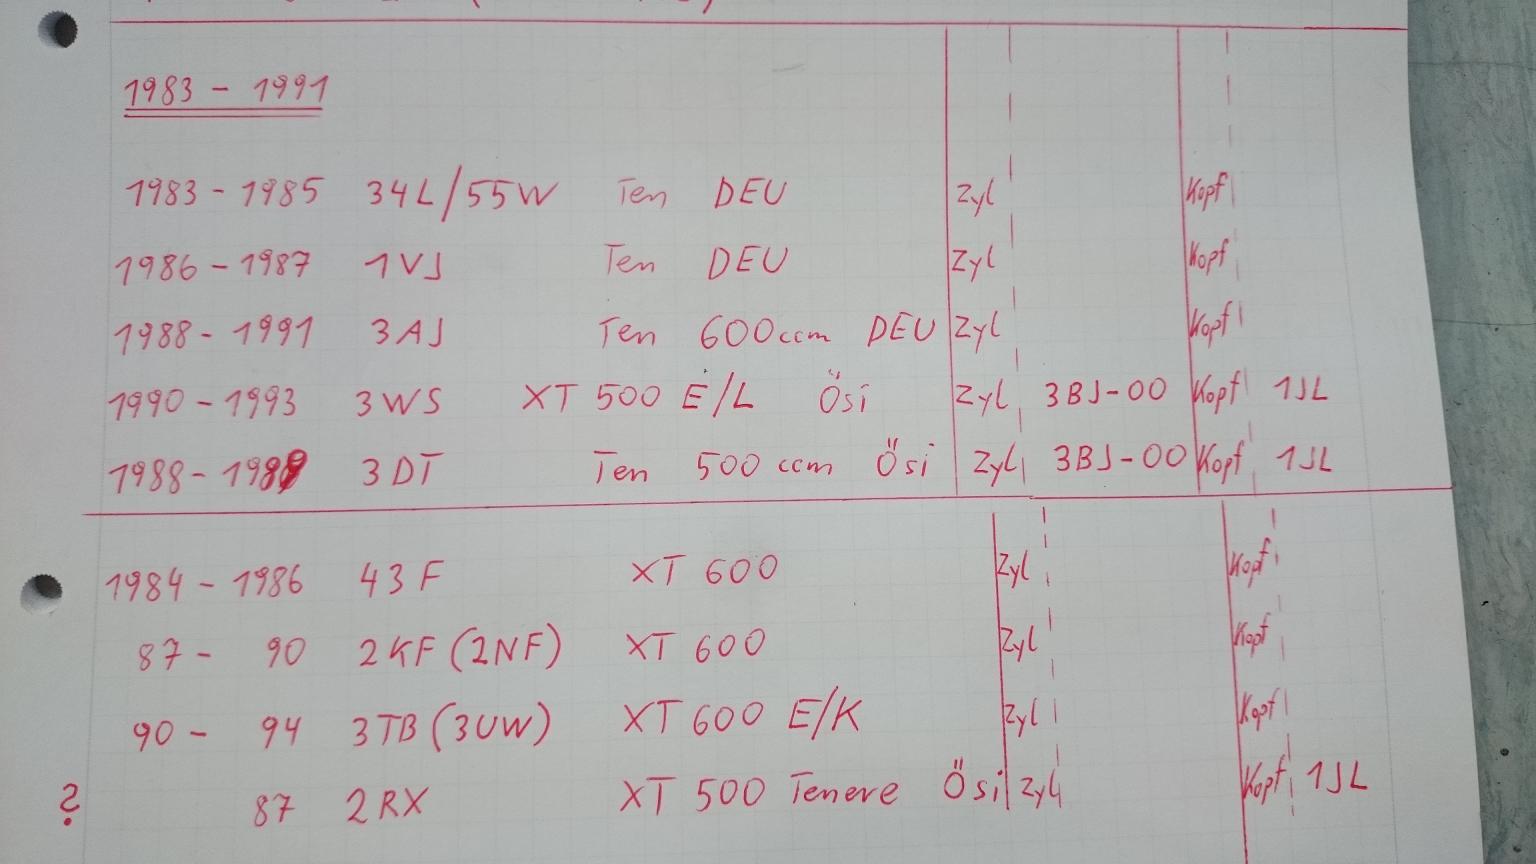 1983 - 1991
1983 - 1985 34L/55W Ten DEU Zyl Kopf
1986 - 1987 1VJ Ten DEU Zyl Kopf
1988 - 1991 3AJ Ten 600ccm DEU Zyl Kopf
1990 - 1993 3WS XT 500 E/L Ösi Zyl 3BJ-00 Kopf 1JL
1988 - 1989 3DT Ten 500 ccm Ösi Zyl 3BJ-00 Kopf 1JL
1984 - 1986 43F XT 600 Zyl Kopf
87 - 90 2KF (2NF) XT 600 Zyl Kopf
90 - 94 3TB (3UW) XT 600 E/K Zyl Kopf
? 87 2RX XT 500 Tenere Ösi Zyl Kopf 1JL